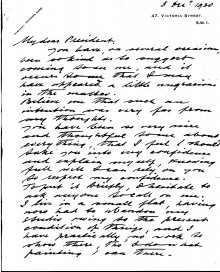 3 Dec. 1930
47, VICTORIA STREET,
S.W.1.
My dear President,
You have, on several occasions,
been so kind as to suggest
coming to see me, and it
occurs to me that I may
have appeared a little ungracious
in the matter.
Believe you that such an
intention was very far from
my thoughts.
You have been so very nice
and thoughtful to me about
everything, that I feel I should
take you into my confidence
and explain myself, knowing
full well I can rely on you
to respect my confidence.
To put it briefly, I hesitate to
ask anyone to call on me.
I live in a small flat, having
now had to abandon my
studio owing to the present
condition of things, and I
have practically no work to
show there,
painting I can there.